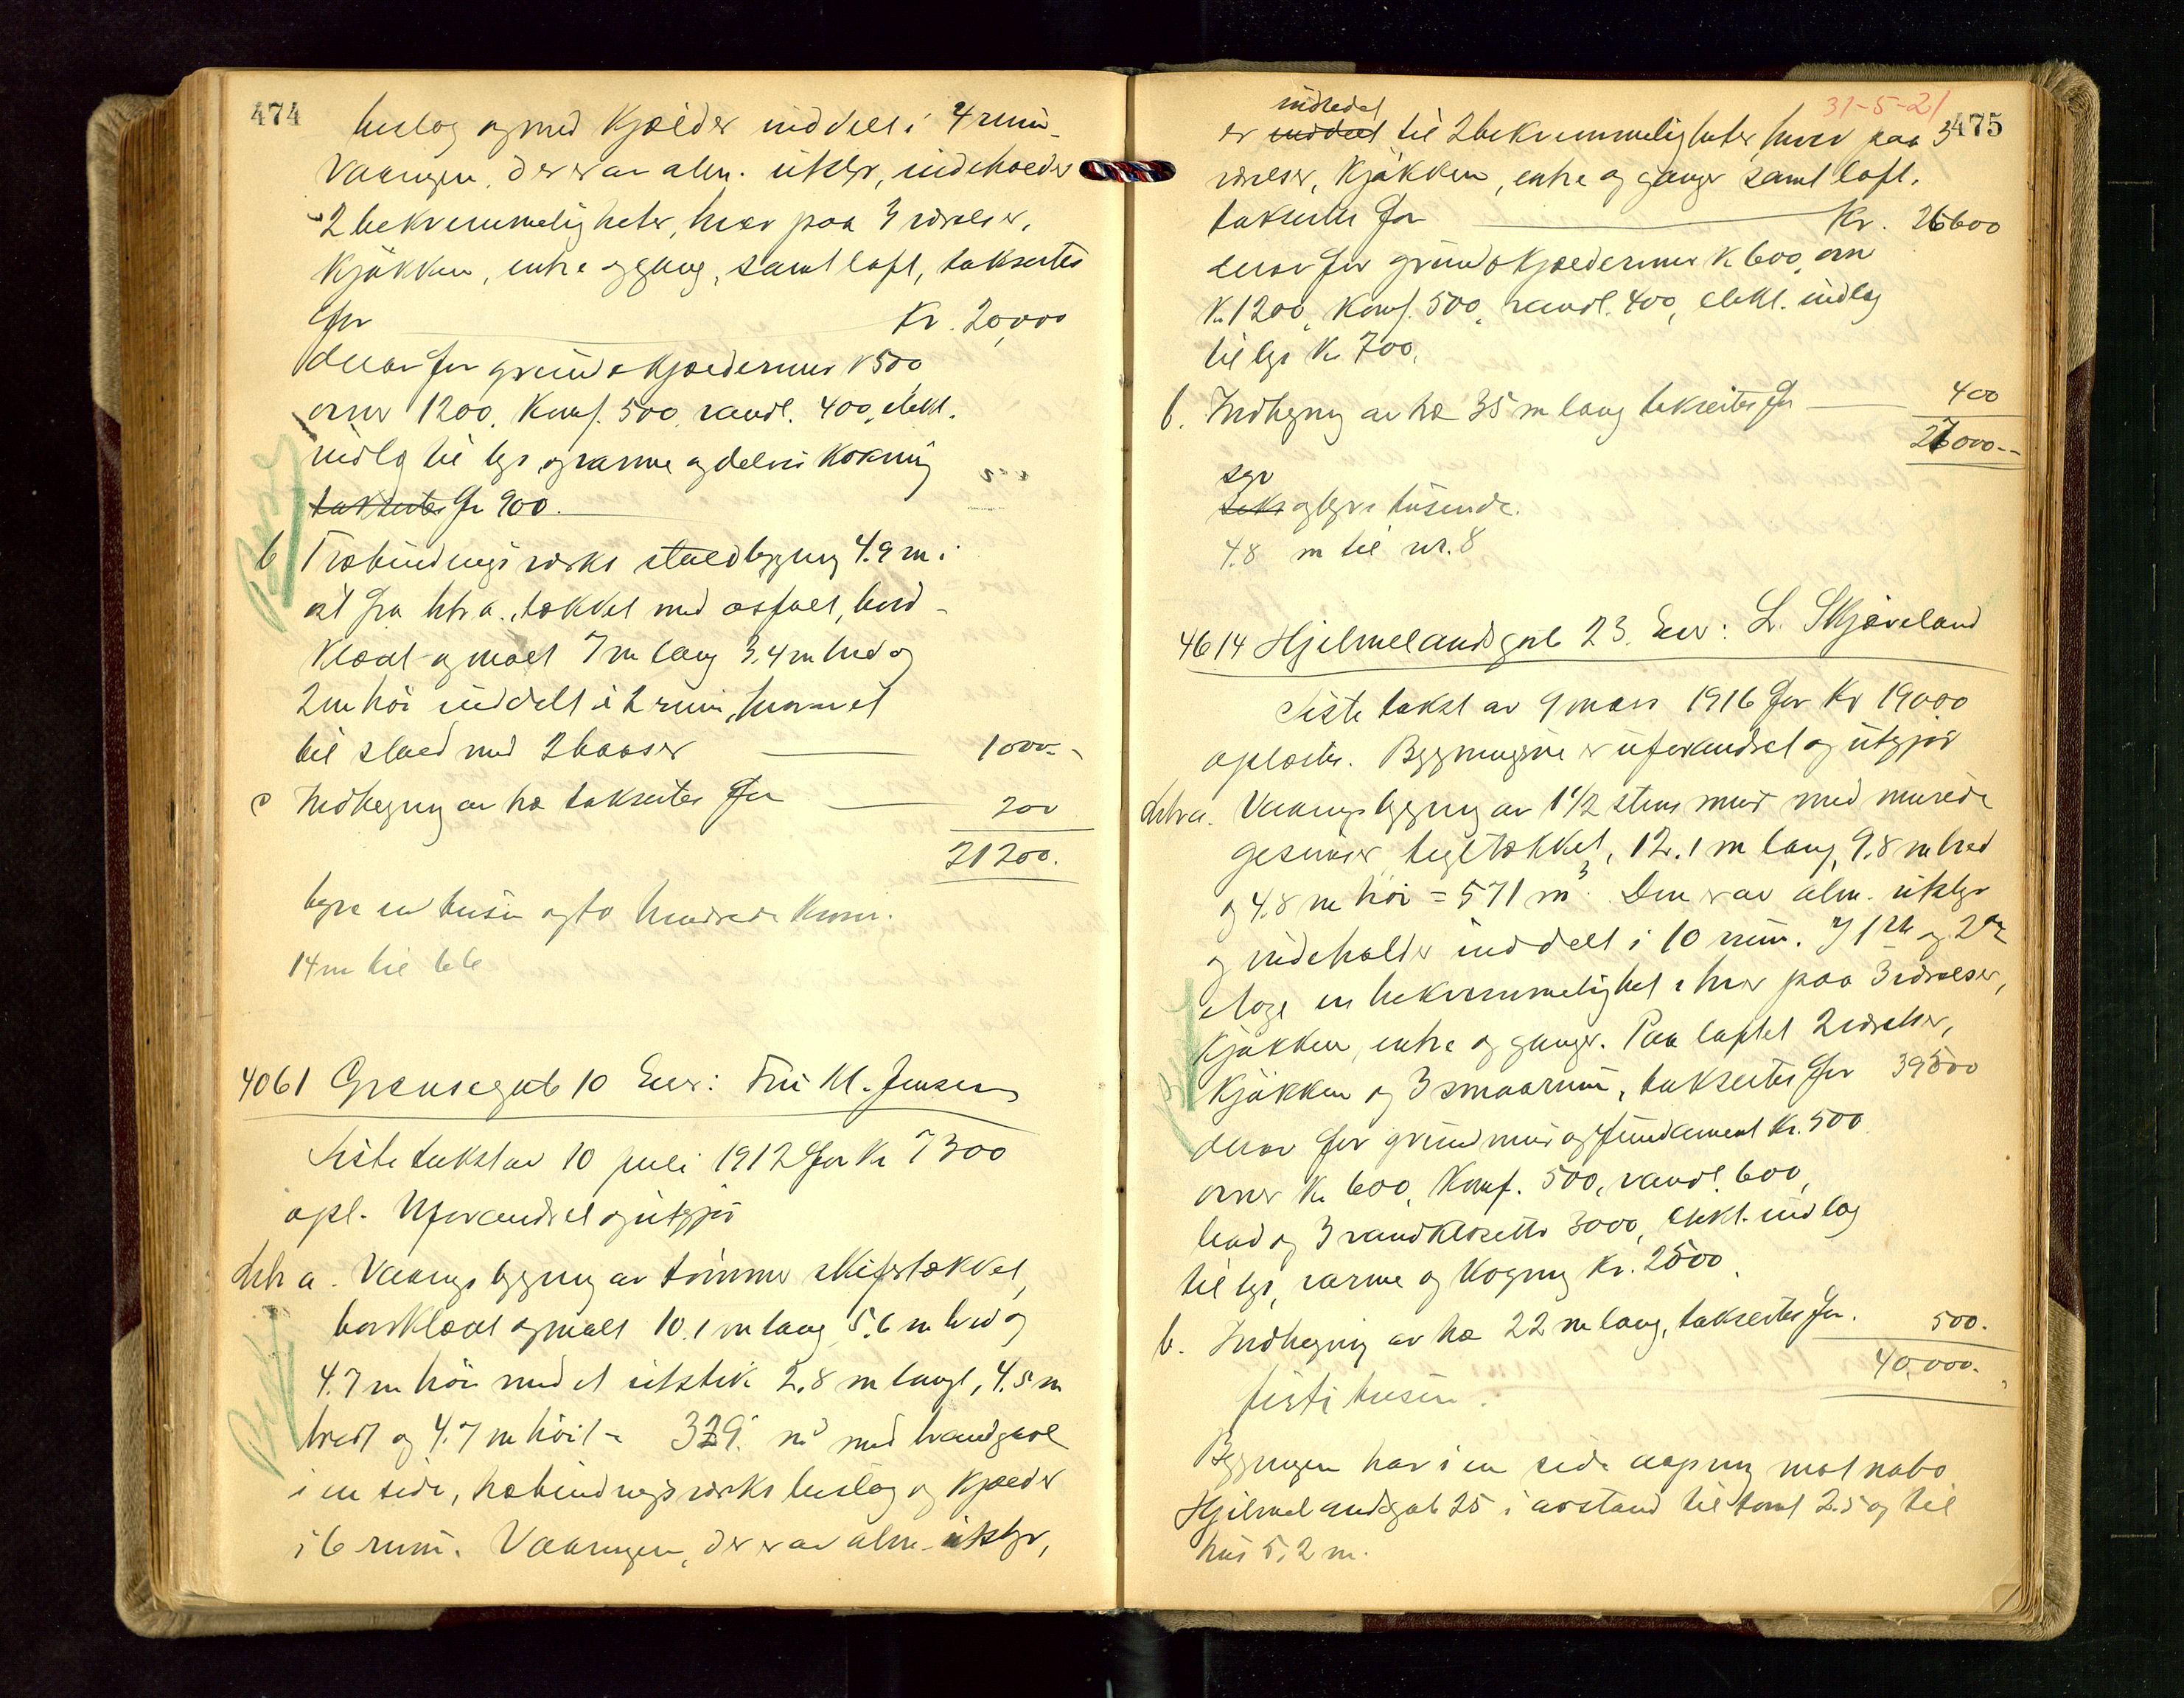 474
beslag og med Kjælder inddelt i 4 rum.
Vaaningen, der er av alm. utstyr, indeholder
2 bekvemmeligheter, hver paa 3 værelser,
Kjøkken, entre og gang, samt loft, takseres
for Kr. 20,000
derav for grund & Kjældermur K 500,
ovner 1200, Komf. 500, vandl. 400, elekt.
indlæg til lys og varme og delvis Kokning
takseres for 900.
b Træbindingsverks staldbygning 4.9 m i
øst fra litr a., tækket med asfalt, bord-
klædt og malt 7 m lang 3.4 m bred og
2 m høi inddelt i 2 rum,
til stald med 2 baaser 1000.-
c Indhegning av træ takseres for 200
21200.
tyve en tusen og to hundrede Kroner.
14 m til
4061 Grænsegate 10 Eier: Fru M. Jensen
Siste takst av 10 juli 1912 for Kr 7300
opl. Uforandret og utgjør
Litr a. Vaaningsbygning av tømmer skifertækket,
bordklædt og malt 10.1 m lang 5.6 m bred og
4.7 m høi med et utstik 2.8 m langt, 4.5 m
bredt og 4.7 m høit = 329. m³ med brandgavl
i en side, træbindingsverks beslag og Kjælder
i 6 rum. Vaaningen, der er av alm. utstyr,
31-5-21
475
indredet
er inddelt til 2 bekvemmeligheter, hver paa 3
værelser, Kjøkken, entre og ganger samt loft.
takseres for Kr. 26600
derav for grund & Kjældermur K 600, ovn
K. 1200, Komf. 500, vandl. 400, elekt. indlæg
til lys Kr 700.
b. Indhegning av træ 35 m lang takseres for 400
27000.-
syv
seks og tyve tusinde.
4.8 m til nr. 8
4614 Hjelmelandsgate 23. Eier: L. Skjæveland
Siste takst av 9 mars 1916 for Kr 19000
oplæstes. Bygningene er uforandret og utgjør
Litr a. Vaaningsbygning av 1 1/2 stens mur med murede
gesimser, tegltækket, 12.1 m lang, 9.8 m bred
og 4.8 m høi = 571 m³. Den er av alm. utstyr
og indeholder inddelt i 10 rum. I 1ste og 2den
etage en bekvemmelighet i hver paa 3 værelser,
Kjøkken, entre og ganger. Paa loftet 2 værelser,
Kjøkken og 3 smaarum, takseres for 39500
derav for grundmur og fundament Kr. 500
ovner Kr. 600, Komf. 500, vandl. 600,
bad og 3 vandklosetter 3000, elekt. indlæg
til lys, varme og Kogning Kr. 2500.
b. Indhegning av træ 22 m lang, takseres for. 500.
40,000.
firti tusen.
Bygningen har i en side aapning mot nabo
Hjelmelandsgate 25 i avstand til tomt 2.5 og til
hus 5.2 m.